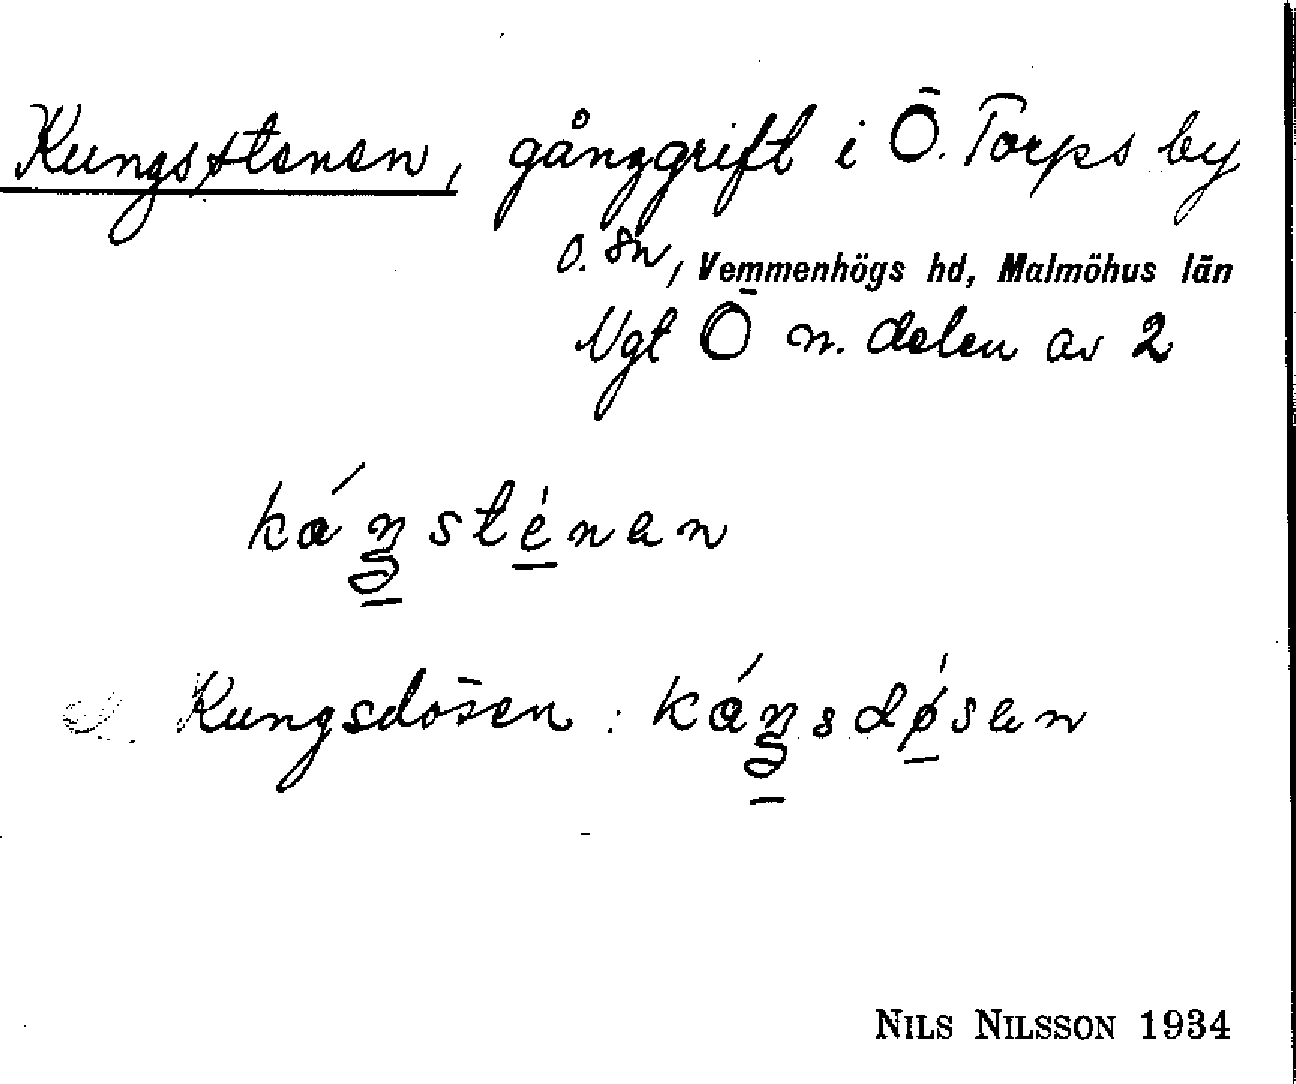 Kungsstenen, gånggrift i Ö. Torps by
o. sn, Vemmenhögs hd, Malmöhus län
Ngt Ö n. delen av 2
káŋsténan
Kungsdösen: káŋsdǿsan
NILS NILSSON 1934